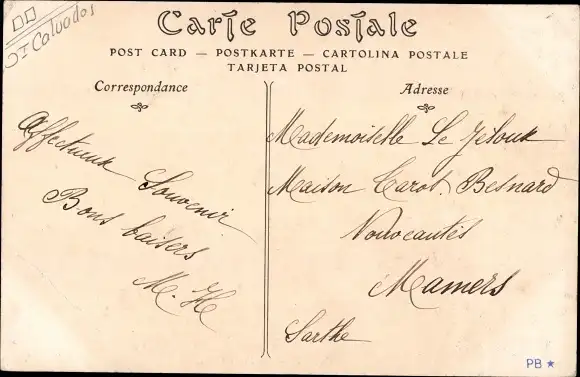 St Calvados
Carte Postale
POST CARD — POSTKARTE — CARTOLINA POSTALE
TARJETA POSTAL
Correspondance
Affectueux Souvenir
Bons baisers
M. H
Adresse
Mademoiselle Le
Maison Carol. Besnard
Nouveautés
Mamers
Sarthe
PB ★